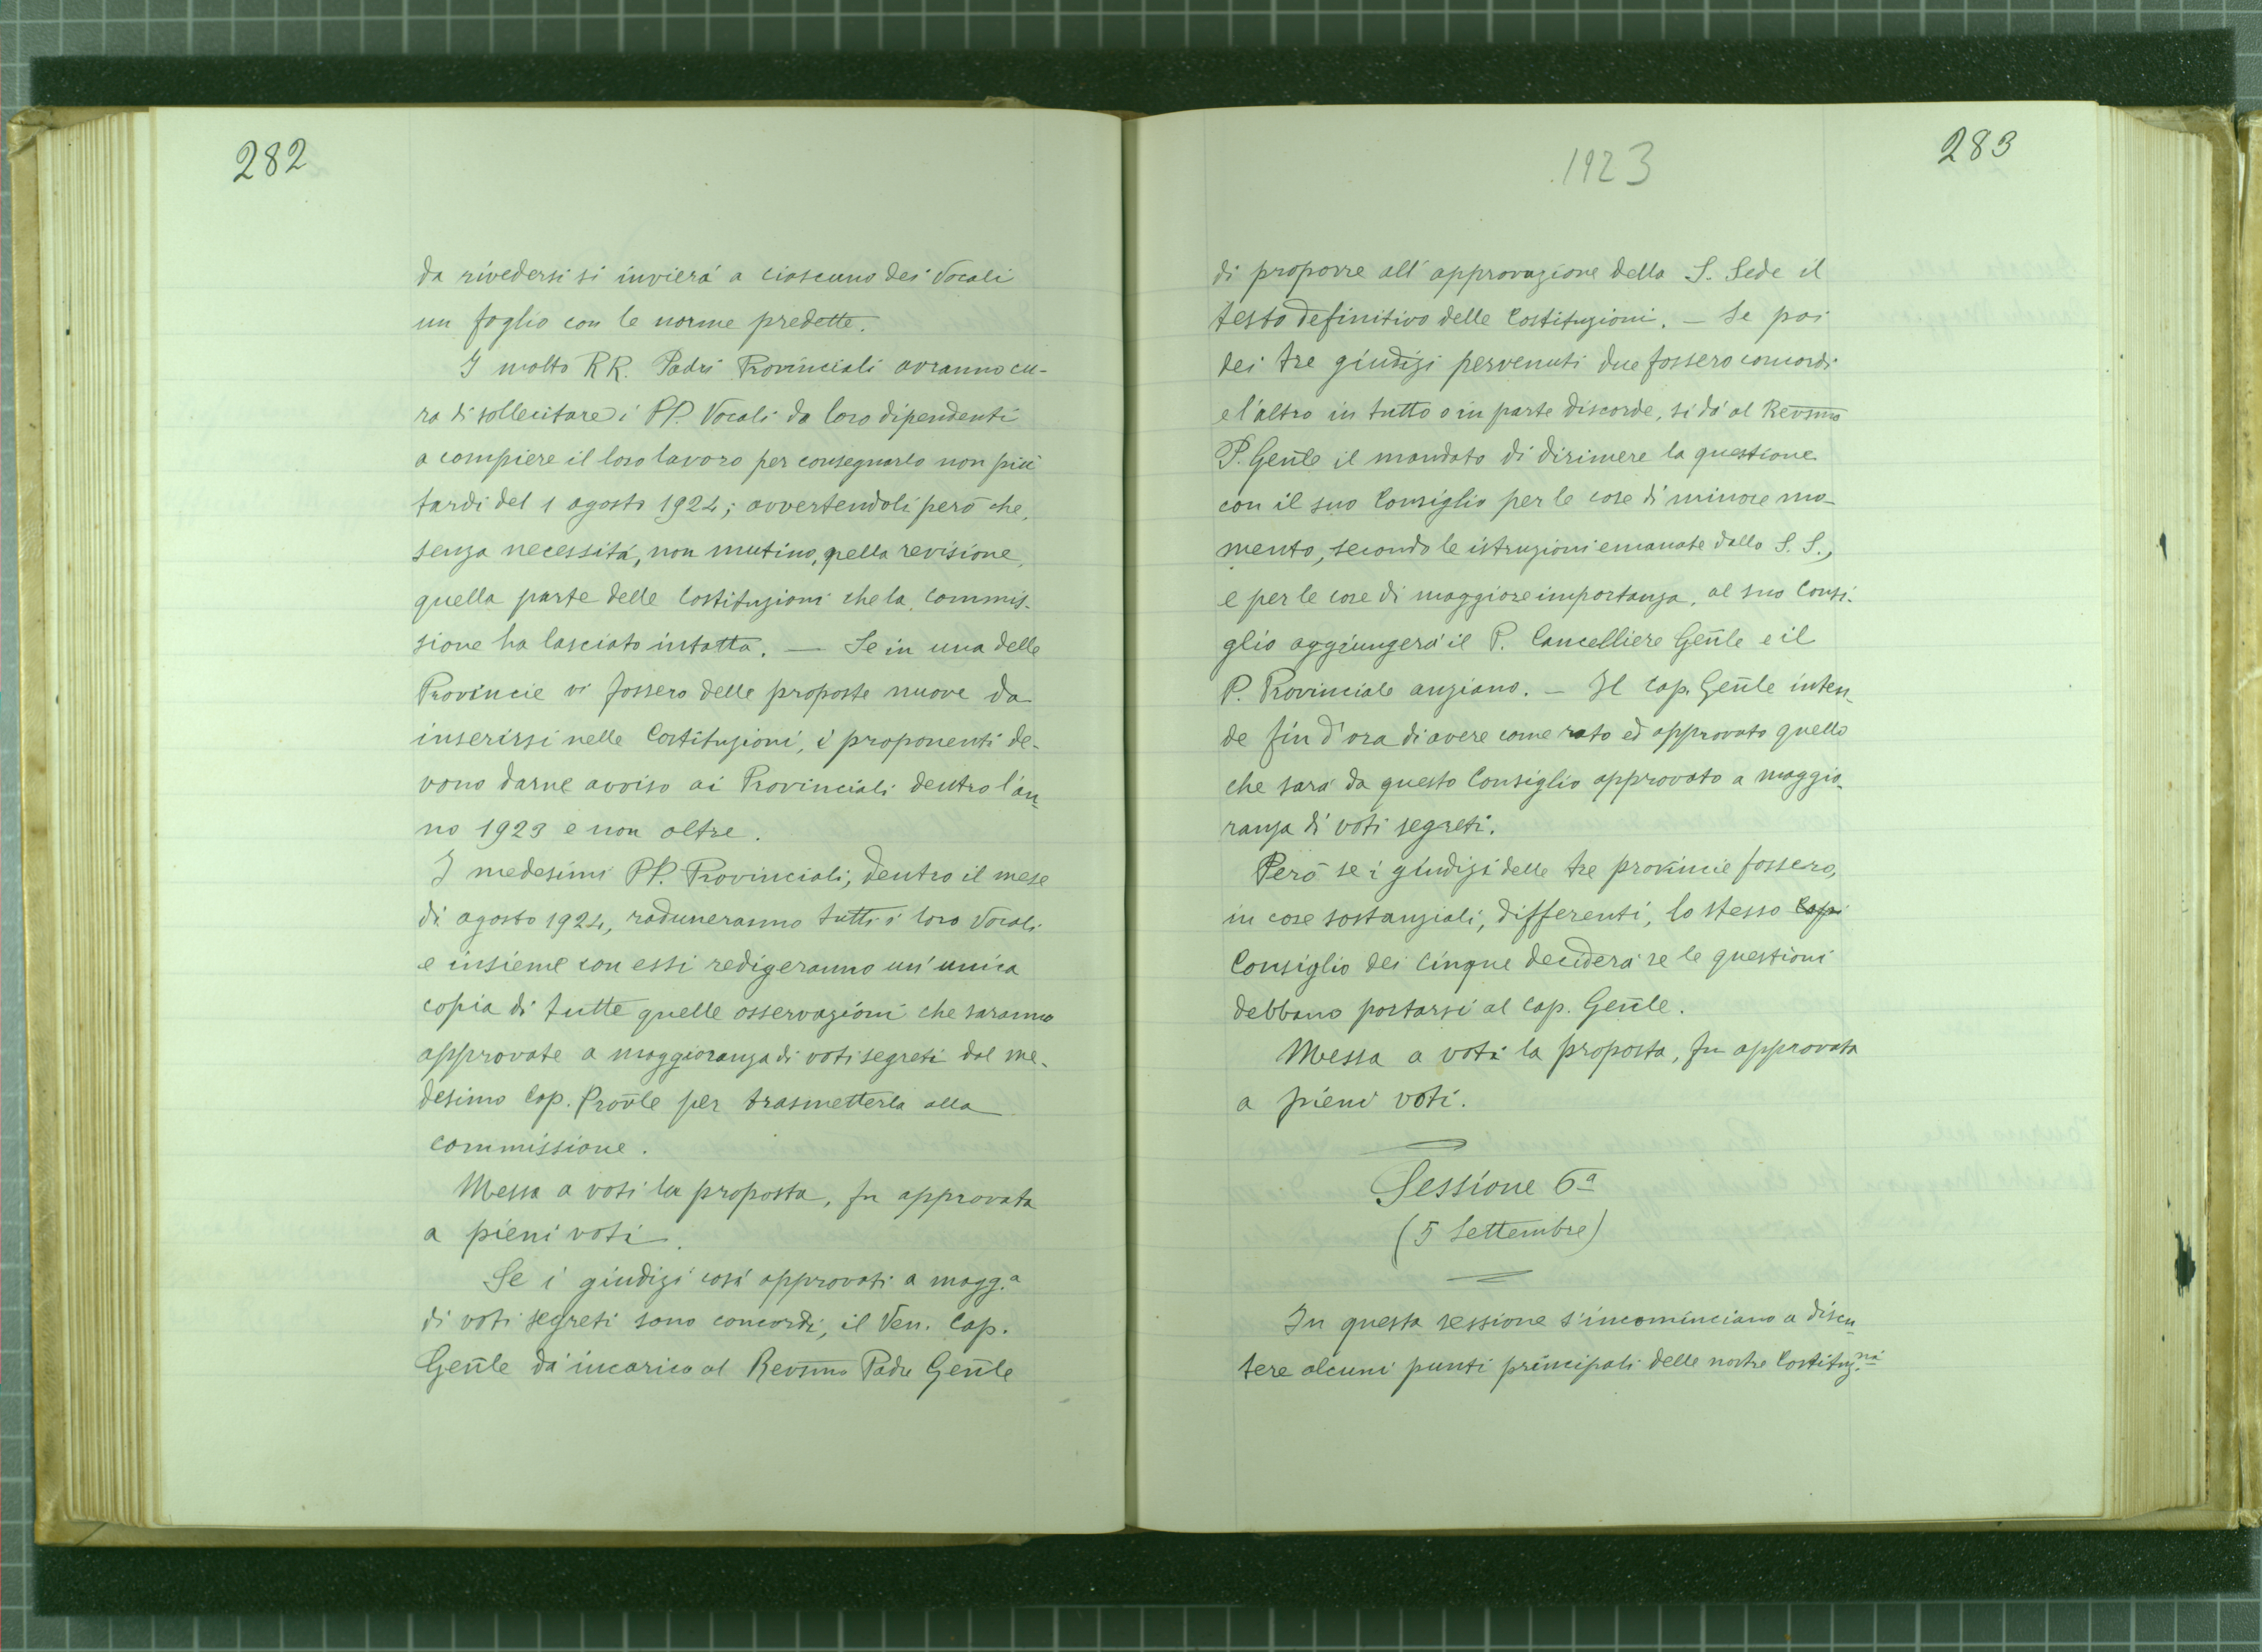 282
da rivedersi si invierá a ciascuno dei Vocali
un foglio con le norme predette.
I molto RR. Padri Provinciali avranno cu-
ra di sollecitare i PP. Vocali da loro dipendenti
a compiere il loro lavoro per consegnarlo non piú
tardi del 1 agosto 1924; avvertendoli peró che,
senza necessitá, non mutino, nella revisione,
quella parte delle Costituzioni che la commis-
sione ha lasciato intatta. — Se in una delle
Provincie vi fossero delle proposte nuove da
inserirsi nelle Costituzioni, i proponenti de-
vono darne avviso ai Provinciali dentro l'an-
no 1923 e non oltre.
I medesimi PP. Provinciali, dentro il mese
di agosto 1924, raduneranno tutti i loro Vocali
e insieme con essi redigeranno un'unica
copia di tutte quelle osservazioni che saranno
approvate a maggioranza di voti segreti dal me-
desimo Cap. Prov̄le per trasmetterla alla
commissione.
Messa a voti la proposta, fu approvata
a pieni voti.
Se i giudizi cosí approvati a magg.ª
di voti segreti sono concordi, il Ven. Cap.
Gen̄le dá incarico al Rev̄smo Padre Gen̄le
1923
283
di proporre all'approvazione della S. Sede il
testo definitivo delle Costituzioni. — Se poi
dei tre giudizi pervenuti due fossero concordi
e l'altro in tutto o in parte discorde, si dá al Rev̄smo
P. Gen̄le il mandato di dirimere la questione
con il suo Consiglio per le cose di minore mo-
mento, secondo le istruzioni emanate dalla S. S.,
e per le cose di maggiore importanza, al suo Consi-
glio aggiungerá il P. Cancelliere Gen̄le e il
P. Provinciale anziano. — Il Cap. Gen̄le inten-
de fin d'ora di avere come rato ed approvato quello
che sará da questo Consiglio approvato a maggio-
ranza di voti segreti.
Peró se i giudizi delle tre provincie fossero,
in cose sostanziali, differenti, lo stesso Capi
Consiglio dei cinque deciderá se le questioni
debbano portarsi al Cap. Gen̄le.
Messa a voti la proposta, fu approvata
a pieni voti.
Sessione 6ª
(5 Settembre)
In questa sessione s'incominciano a discu-
tere alcuni punti principali delle nostre Costituz.ni